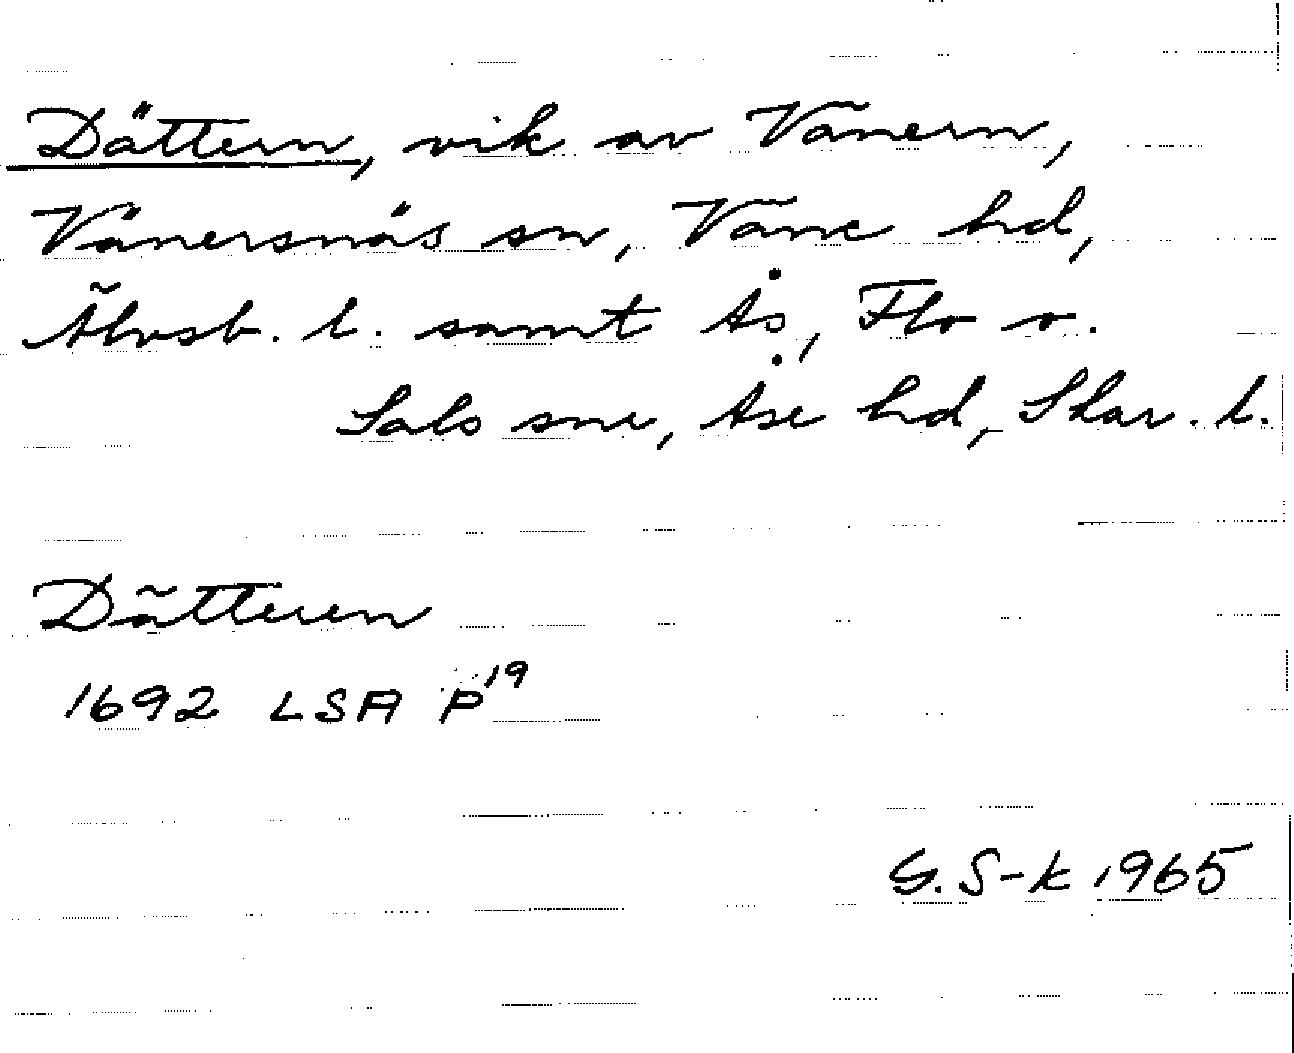 Dättern, vik av Vänern,
Vänersnäs sn, Väne hd,
Älvsb. l. samt Ås, Flo o.
Sals snr, Åse hd, Skar. l.
Dätteren
1692 LSA P19
G.S-k 1965